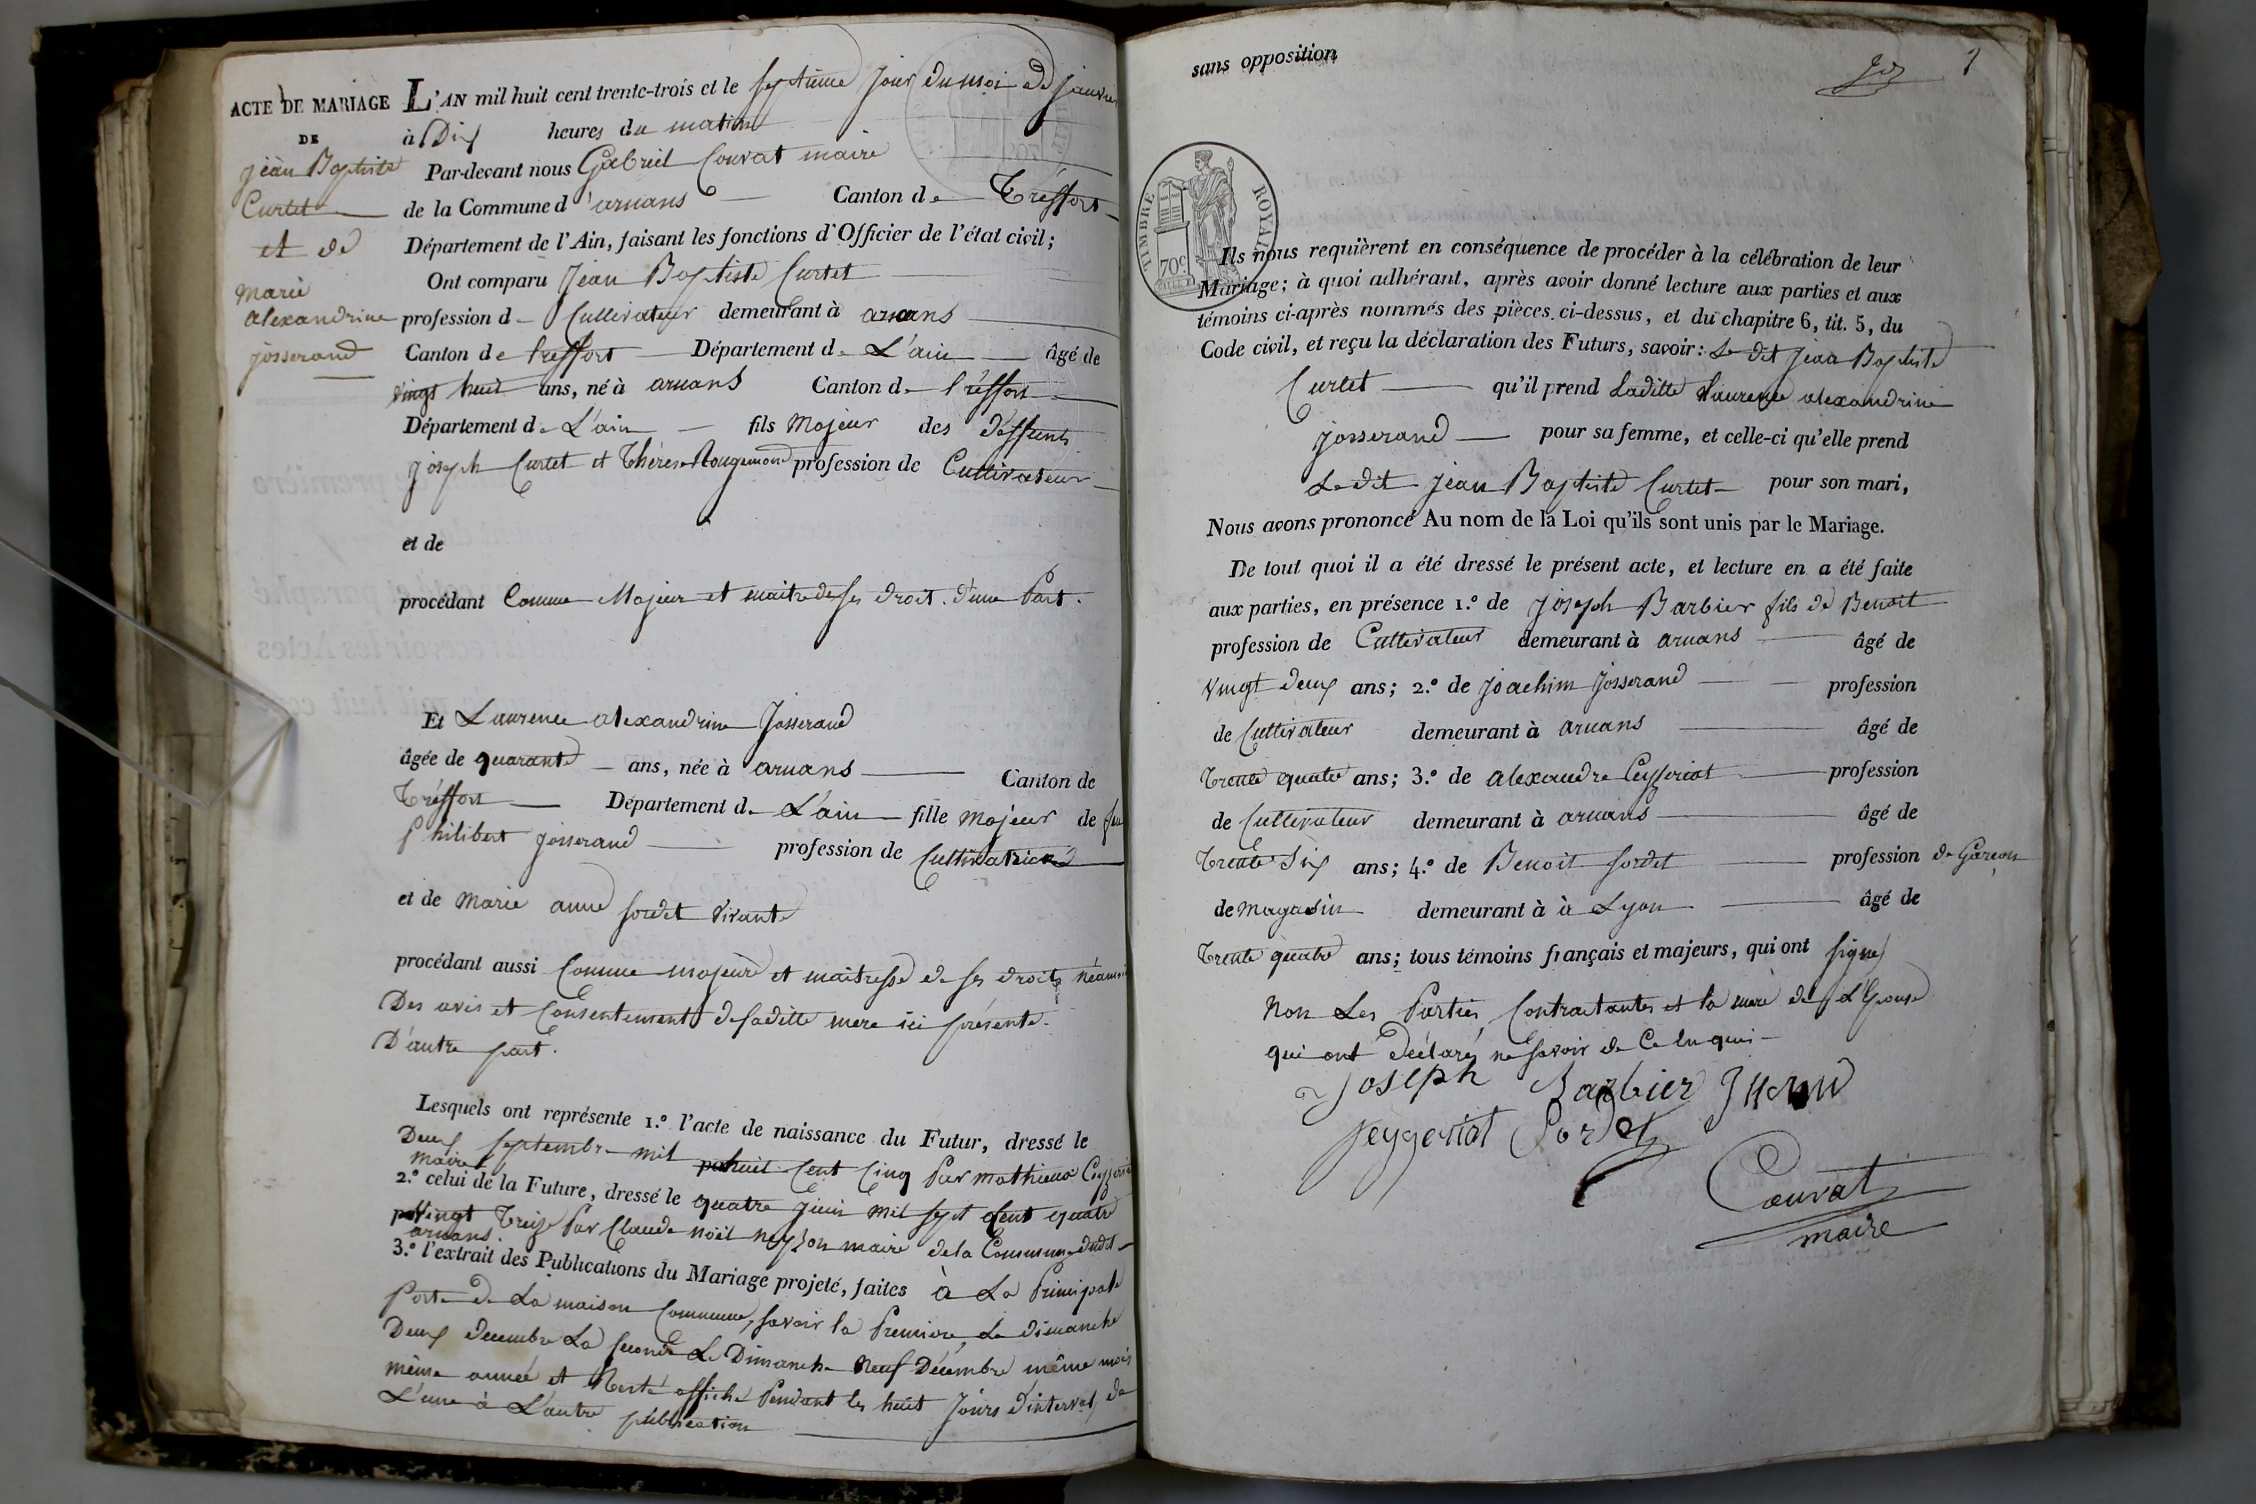 ACTE DE MARIAGE
DE
jean Baptiste
Curtet
et de
marie
alexandrine
josserand
L'AN mil huit cent trente-trois et le septième jour du moi de janvier
à Dix heures du matin
Par-devant nous Gabriel Couvat maire
de la Commune d'aruans Canton de Tréffort
Département de l'Ain, faisant les fonctions d'Officier de l'état civil;
Ont comparu Jean Baptiste Curtet
profession de Cultivateur demeurant à aruans
Canton de tréffort Département de L'ain âgé de
vingt huit ans, né à aruans Canton de tréffort
Département de L'ain fils Majeur des déffunts
joseph Curtet et Thérèse Rougemond profession de Cultivateur
et de
procédant Comme Majeur et maitre de ses droit. d'une Part.
Et Laurence alexandrine Josserand
âgée de quarante ans, née à aruans Canton de
Tréffort Département de L'ain fille majeur de feu
Philibert josserand profession de Cultivatrice
et de Marie anne sordet vivante
procédant aussi Comme majeure et maitresse de ses droits néamoi
Des avis et Consentement de saditte mere ici présente.
D'autre part.
Lesquels ont représente 1.º l'acte de naissance du Futur, dressé le
Deux septembre mil huit Cent Cinq Par mathieu
maire
2.º celui de la Future, dressé le quatre juin mil sept Cent quatre
vingt treize Par Claude noël maire de la Commune dudit
aruans.
3.º l'extrait des Publications du Mariage projeté, faites à La Principale
Porte de La maison Commune, savoir la Premiere Le dimanche
Deux decembre La seconde Le Dimanche Neuf Décembre même mois
même année et Resté affiché Pendant les huit Jours d'interval de
L'une à L'autre publication
sans opposition
TIMBRE ROYAL
70c
Ils nous requièrent en conséquence de procéder à la célébration de leur
Mariage; à quoi adhérant, après avoir donné lecture aux parties et aux
témoins ci-après nommés des pièces ci-dessus, et du chapitre 6, tit. 5, du
Code civil, et reçu la déclaration des Futurs, savoir: Le dit Jean Baptiste
Curtet qu'il prend Laditte Laurence alexandrine
josserand pour sa femme, et celle-ci qu'elle prend
Le dit jean Baptiste Curtet pour son mari,
Nous avons prononcé Au nom de la Loi qu'ils sont unis par le Mariage.
De tout quoi il a été dressé le présent acte, et lecture en a été faite
aux parties, en présence 1.º de joseph Barbier fils de Benoit
profession de Cultivateur demeurant à aruans âgé de
vingt deux ans; 2.º de joachim josserand profession
de Cultivateur demeurant à aruans âgé de
Trente quatre ans; 3.º de alexandre Ceyzeriat profession
de Cultivateur demeurant à aruans âgé de
Trente Six ans; 4.º de Benoit sordet profession de Garcon
de magasin demeurant à à Lyon âgé de
Trente quatre ans; tous témoins français et majeurs, qui ont signé
Non Les Parties Contractantes et la mere de L'Epouse
qui ont Déclaré ne savoir de Ce Enquis
Joseph Barbier
Seyzeriat Sordet
Couvat
maire